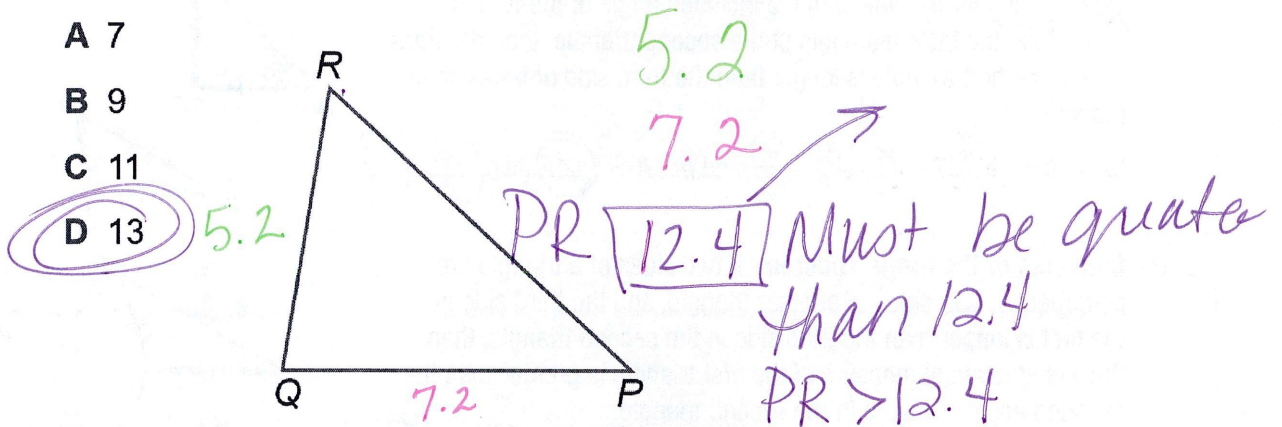 A 7
B 9
C 11
D 13
R
5.2
Q
7.2
P
5.2
7.2
PR 12.4 Must be greater
than 12.4
PR > 12.4